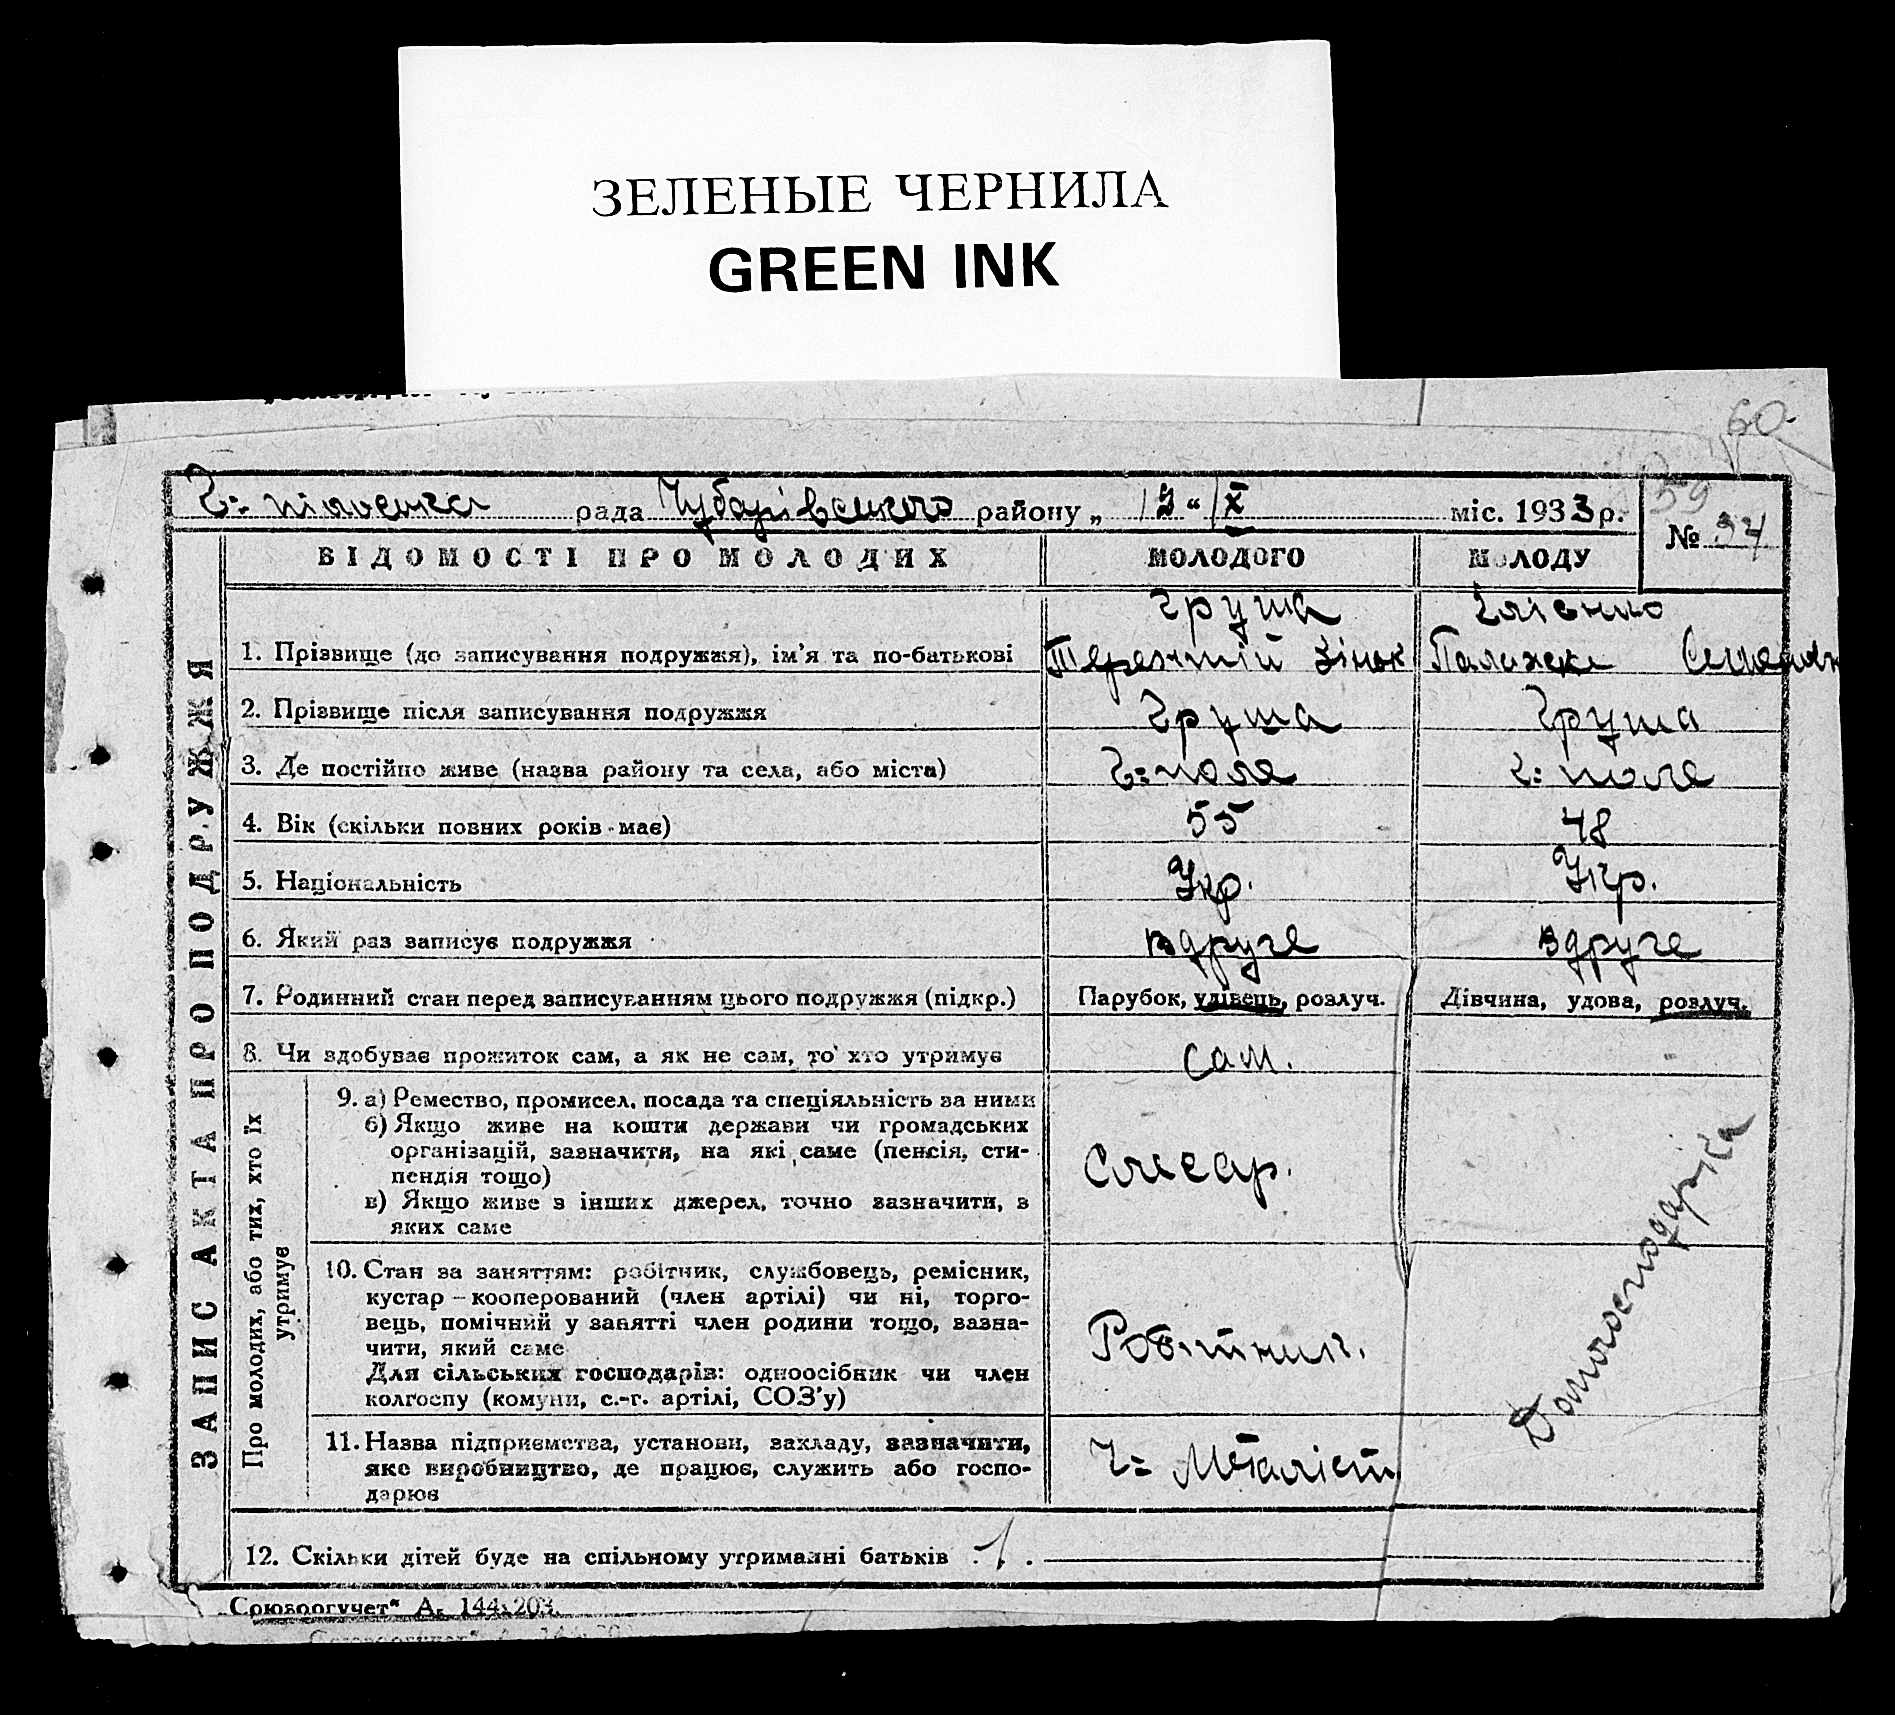 ЗЕЛЕНЫЕ ЧЕРНИЛА
GREEN INK
60
59
Г=пільська рада Чубарівського району „13“ / X міс. 1933 р.
№ 34
ВІДОМОСТІ ПРО МОЛОДИХ МОЛОДОГО МОЛОДУ
Груша
1. Прізвище (до записування подружжя), ім'я та по-батькові Терентій Зінов Палажка Семенівн
2. Прізвище після записування подружжя Груша Груша
3. Де постійно живе (назва району та села, або міста) Г=поле Г=поле
4. Вік (скільки повних років має) 55 48
5. Національність Укр. Укр.
6. Який раз записує подружжя вдруге вдруге
7. Родинний стан перед записуванням цього подружжя (підкр.) Парубок, удівець, розлуч. Дівчина, удова, розлуч.
8. Чи здобуває прожиток сам, а як не сам, то хто утримує сам.
ЗАПИС АКТА ПРО ПОДРУЖЖЯ
Про молодих, або тих, хто їх
утримує
9. а) Ремество, промисел, посада та спеціяльність за ними
б) Якщо живе на кошти держави чи громадських
організацій, зазначити, на які саме (пенсія, сти-
пендія тощо)
Слесар.
в) Якщо живе з інших джерел, точно зазначити, з
яких саме
10. Стан за заняттям: робітник, службовець, ремісник,
кустар – кооперований (член артілі) чи ні, торго-
вець, помічний у занятті член родини тощо, зазна-
чити, який саме
Робітник.
Для сільських господарів: одноосібник чи член
колгоспу (комуни, с.-г. артілі, СОЗ'у)
Домогосподарка
11. Назва підприємства, установи, закладу, зазначити,
яке виробництво, де працює, служить або госпо-
дарює
Г= Металіст
12. Скільки дітей буде на спільному утриманні батьків 1.
„Союзоргучет“ А. 144 203.